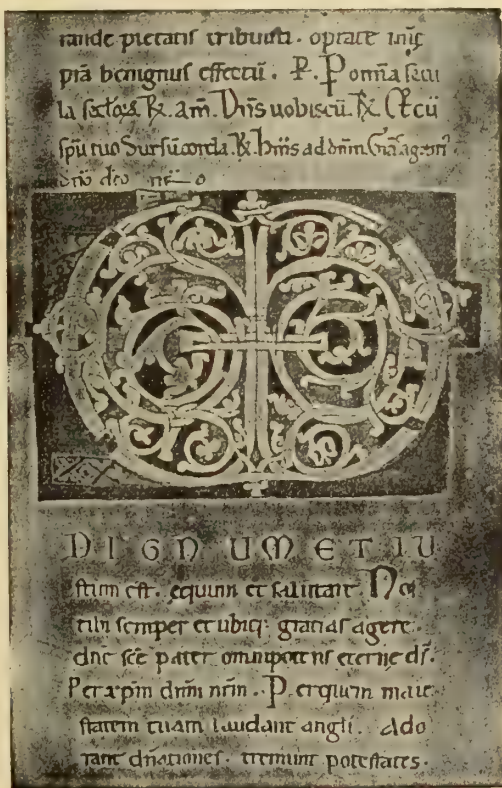 rande pietatis tribuisti. optate
pia benignus effectū. P. Per om̄ia secu
la secloꝝ ℟. am̄. Dn̄s uobiscū. ℟. Et cū
sp̄u tuo Sursū corda. ℟. ad dn̄m
dn̄o deo
DIGNUM ET IU
stum est. equum et salutare Nos
tibi semper et ubiq: gratias agere.
dn̄e sc̄e pater omnipotens eterne dš.
Per xp̄m dn̄m nr̄m. Per quem maie
statem tuam laudant angli. Ado
rant dn̄ationes. tremunt potestates.